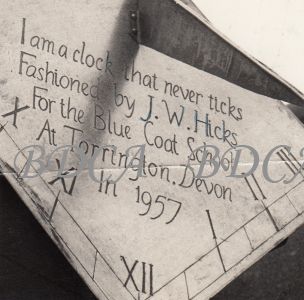 I am a clock that never ticks
Fashioned by J. W. Hicks
For the Blue Coat School
At Torrington. Devon
In 1957
X
XI
XII
I
II
BDCA BDCA